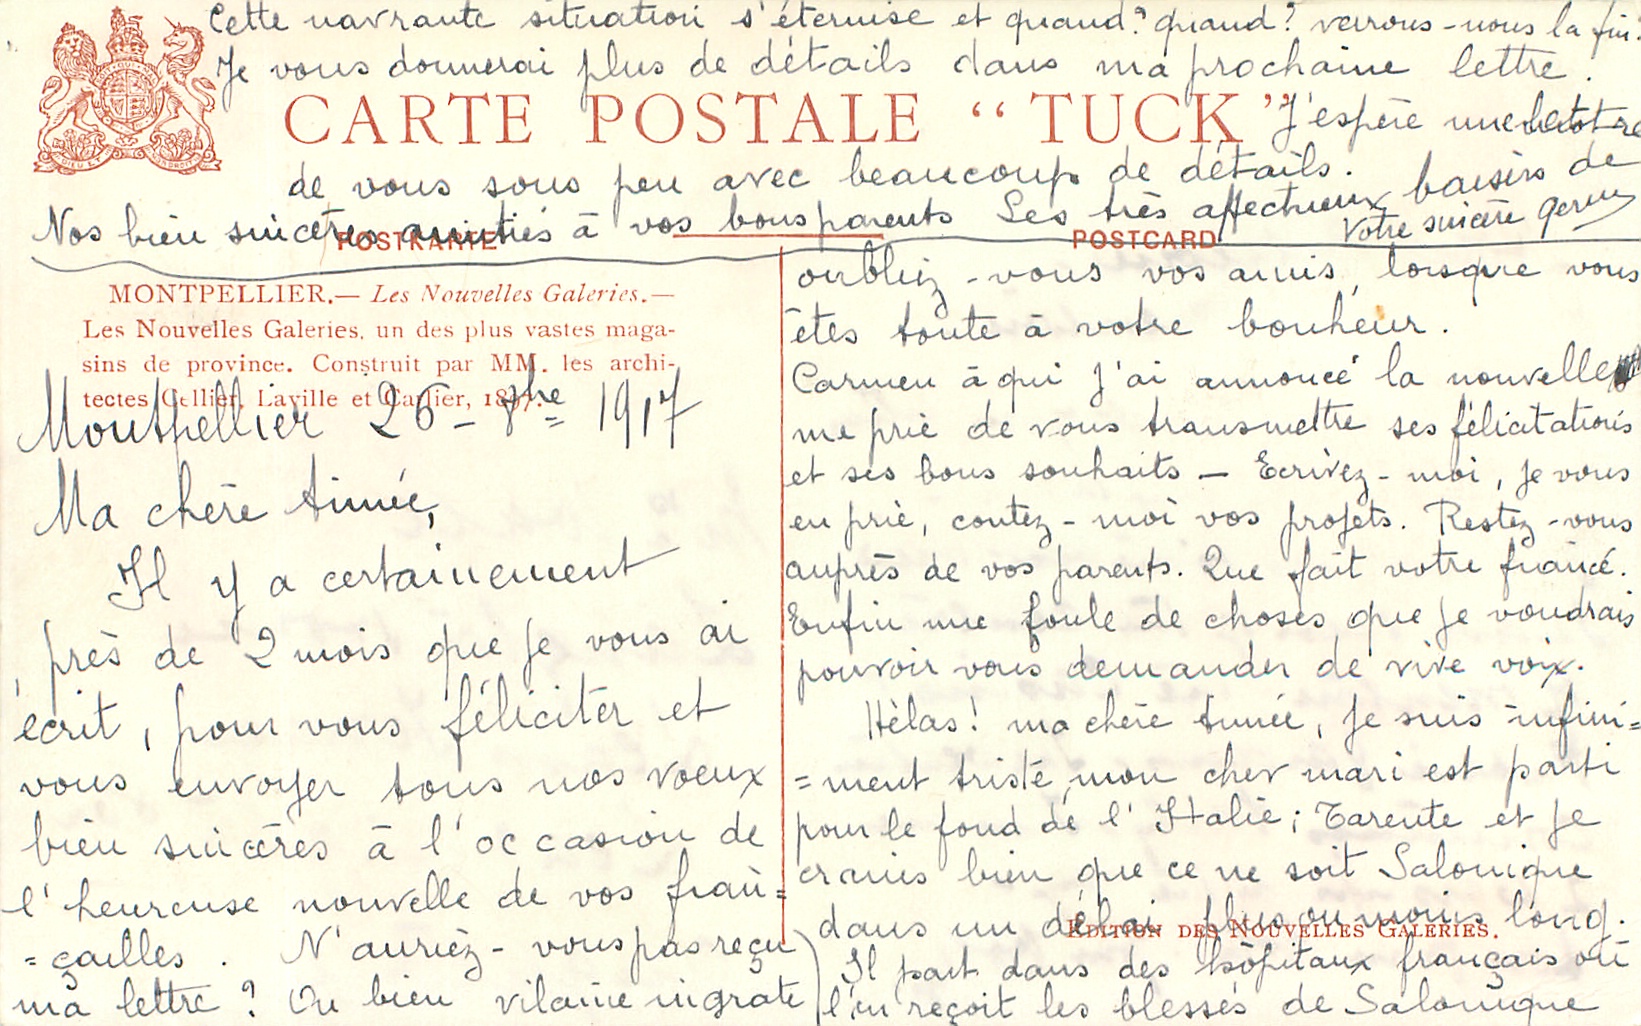 Cette navrante situation s'éternise et quand? quand? verrons-nous la fin.
Je vous donnerai plus de détails dans ma prochaine lettre.
CARTE POSTALE “TUCK”
J'espère une
de vous sous peu avec beaucoup de détails.
Nos bien sincères amitiés à vos bons parents. Les très affectueux baisers de
Votre sincère
POSTKARTE
POSTCARD
MONTPELLIER.— Les Nouvelles Galeries.—
Les Nouvelles Galeries, un des plus vastes maga-
sins de province. Construit par MM. les archi-
tectes Cellier, Laville et Carlier, 1897.
Montpellier 26 - 8bre 1917
Ma chère Aimée,
Il y a certainement
près de 2 mois que je vous ai
écrit, pour vous féliciter et
vous envoyer tous nos voeux
bien sincères à l'occasion de
l'heureuse nouvelle de vos fian=
=çailles. N'auriez-vous pas reçu
ma lettre? Ou bien vilaine ingrate
oubliez-vous vos amis, lorsque vous
êtes toute à votre bonheur.
Carmen à qui j'ai annoncé la nouvelle
me prie de vous transmettre ses félicitations
et ses bons souhaits — Ecrivez-moi, je vous
en prie, contez-moi vos projets. Restez-vous
auprès de vos parents. Que fait votre fiancé.
Enfin une foule de choses que je voudrais
pouvoir vous demander de vive voix.
Hélas! ma chère Aimée, je suis infini=
=ment triste, mon cher mari est parti
pour le fond de l'Italie; Tarente et je
crains bien que ce ne soit Salonique
dans un délai plus ou moins long.
Il part dans des hôpitaux français où
l'on reçoit les blessés de Salonique
EDITION DES NOUVELLES GALERIES.